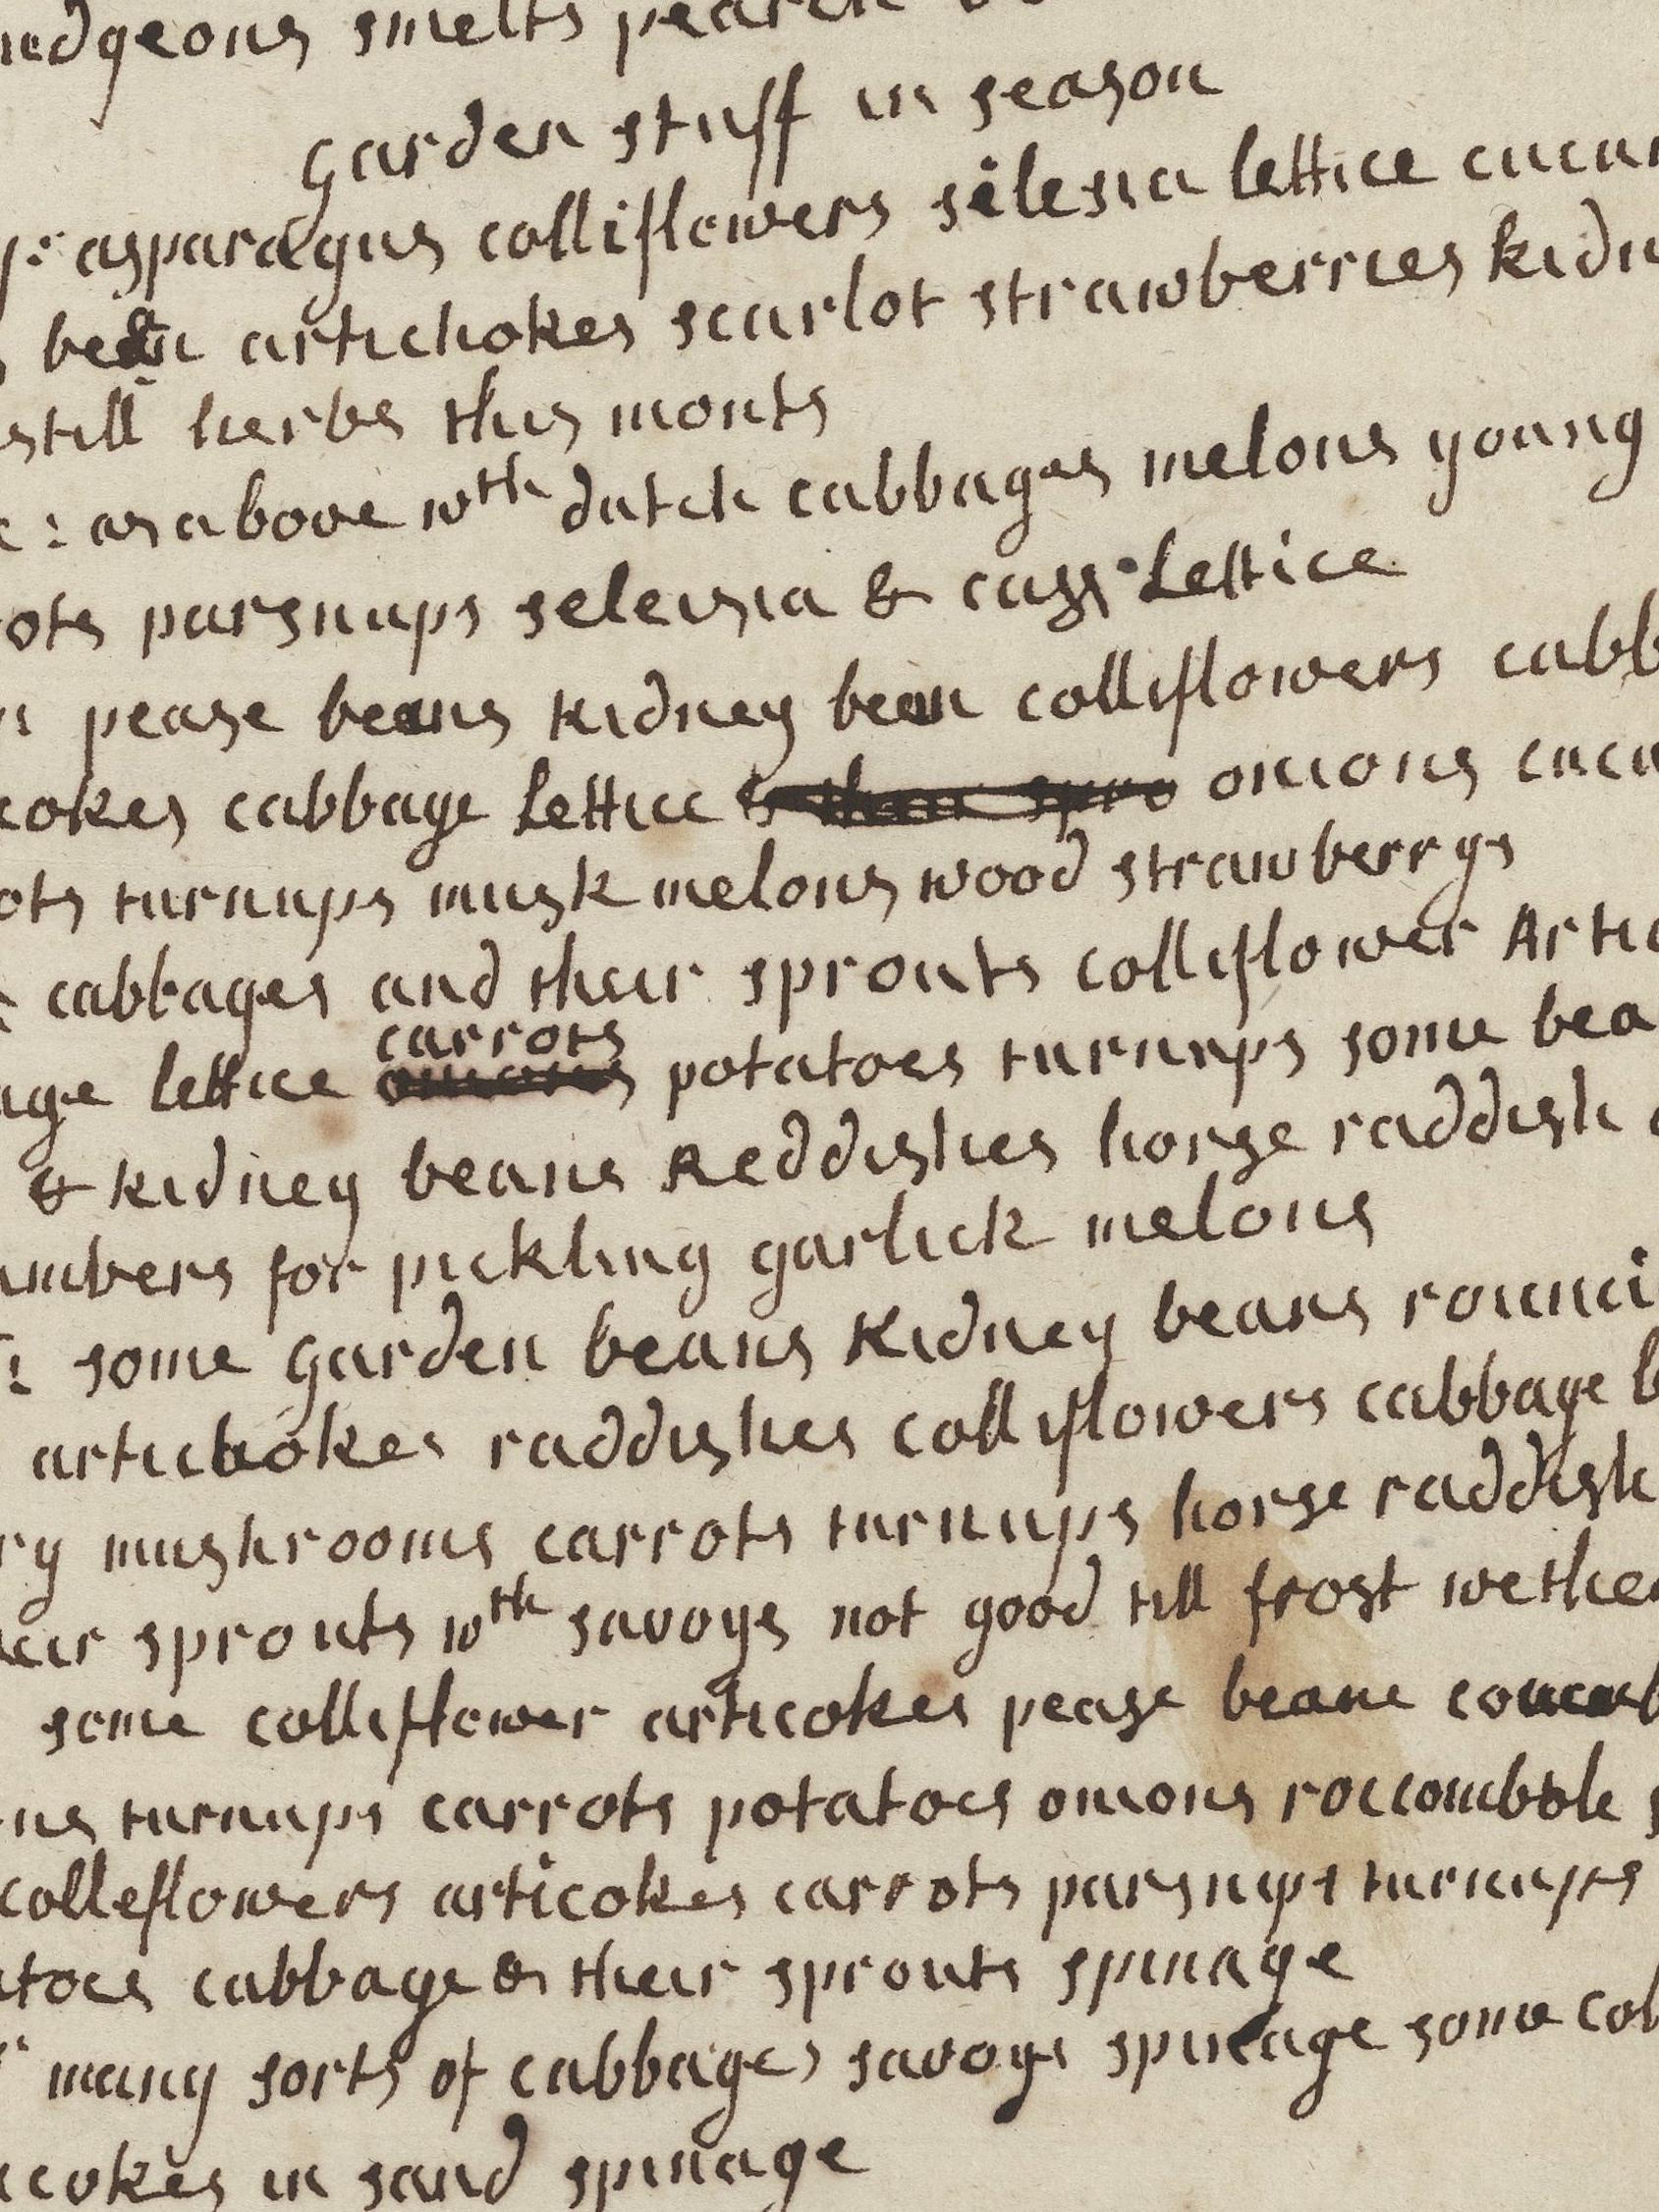 udgeons smelts pearch
garden stuff in season
asparagus colliflowers silesia lettice cucum
bean artichokes scarlot strawberries kidn
still herbs this month
: as above wth dutch cabbages melons young
ots parsnups seleisia & cass Lettice
pease beans kidney bean colliflowers cabb
cokes cabbage Lettice & their spro onions cucu
ots turnups musk melons wood strawberrys
cabbages and their sprouts colliflower Artic
carrots
age lettice onions potatoes turnups some bea
& kidney beans Reddishes horse raddish
umbers for pickling garlick melons
some garden beans Kidney beans rounci
artichokes raddishes colliflowers cabbage l
ry mushrooms carrots turnups horse raddish
eir sprouts wth savoys not good till frost wether
some colliflower articokes pease beane coucumb
ns turnups carrots potatoes onions roccombole
colleflowers articokes carrots parsnips turnups
atoes cabbage & their sprouts spinage
many sorts of cabbages savoys spineage some col
cokes in sand spinage